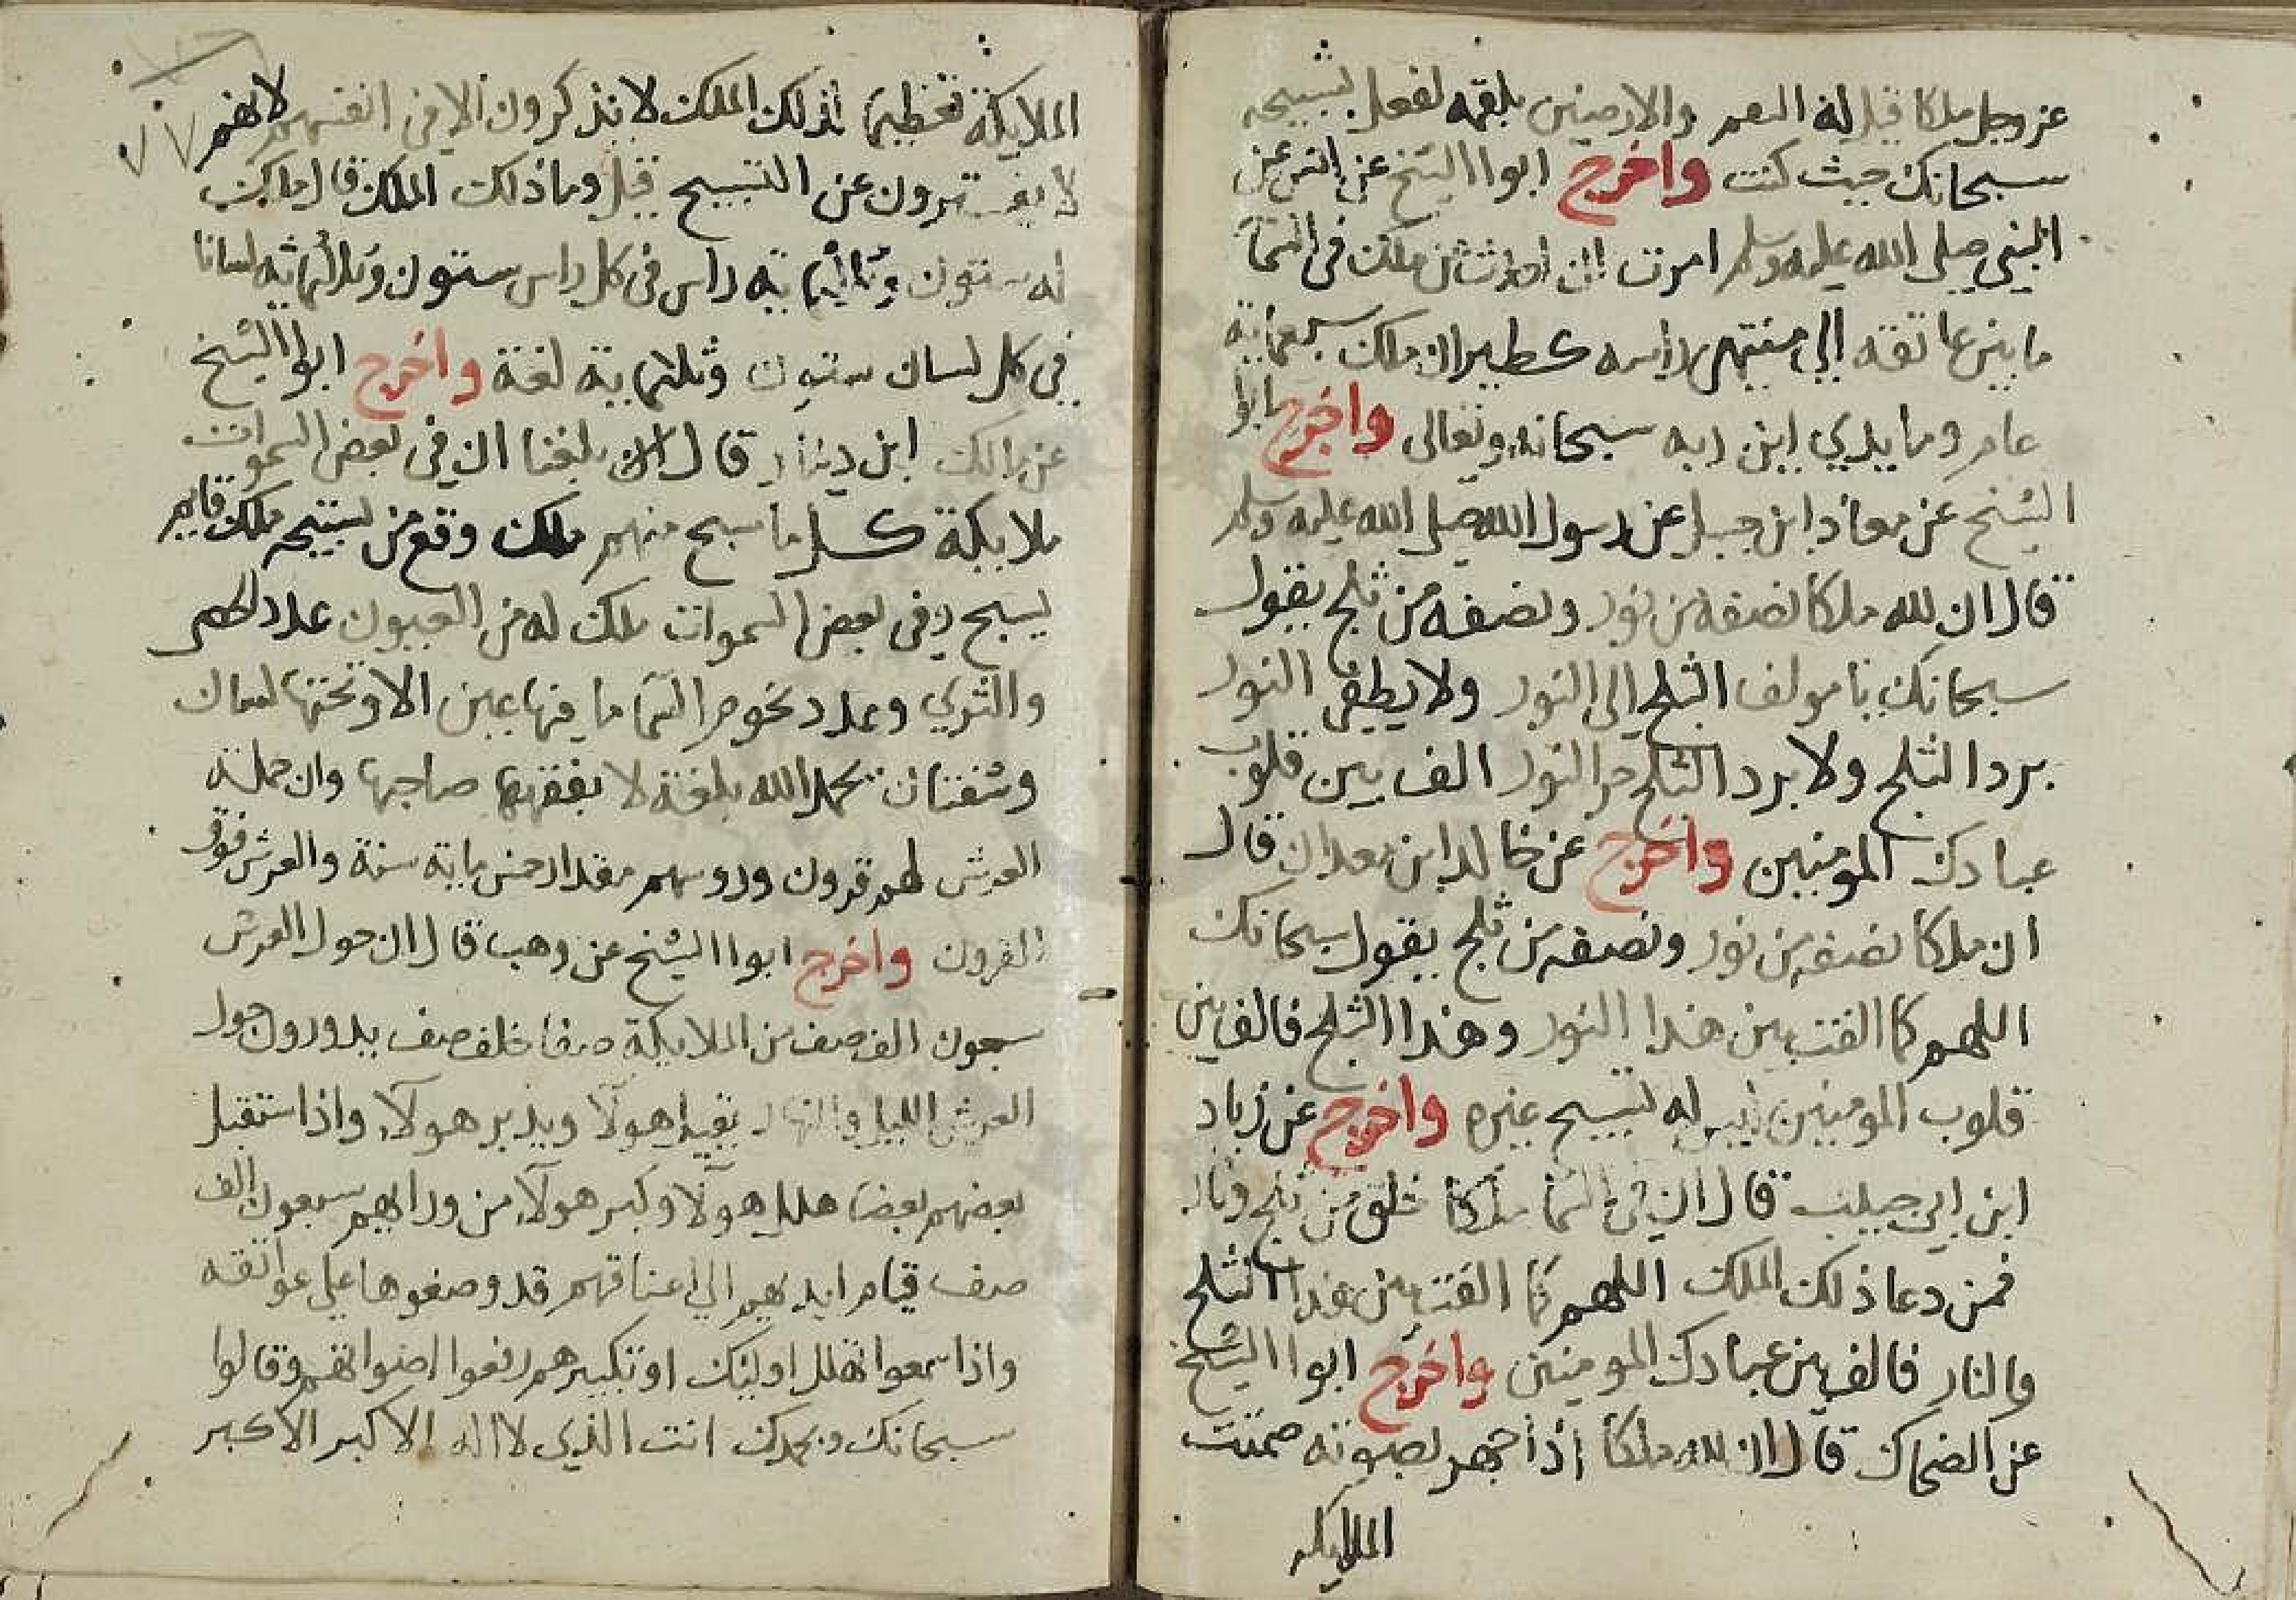 عز وجل ملكا قيل له التقم والارضين بلقمه لفعل تسبيحه
سبحانك حيث كنت واخرج ابوا الشيخ عن انس عن
النبي صلى الله عليه وسلم امرت ان احدث عن ملك في السما
ما بين عاتقه الى منتهى راسه كطيران ملك سبعماية
عام وما يدري اين ربه سبحانه وتعالى واخرج ابوا
الشيخ عن معاذ ابن جبل عن رسول الله صلى الله عليه وسلم
قال ان لله ملكا نصفه من نور ونصفه من ثلج يقول
سبحانك يا مولف الثلج الى النور ولا يطفى النور
برد الثلج ولا برد الثلج حر النور الف بين قلوب
عبادك المومنين واخرج عن خالد ابن معدان قال
ان ملكا نصفه من نور ونصفه من ثلج يقول سبحانك
اللهم كما الفت بين هذا النور وهذا الثلج فالف بين
قلوب المومنين ليس له تسبيح غيره واخرج عن زياد
ابن ابي حبيب قال ان في السما ملكا خلق من ثلج ونار
فمن دعا ذلك الملك اللهم كما الفت بين هذا الثلج
والنار فالف بين عبادك المومنين واخرج ابوا الشيخ
عن الضحاك قال ان لله ملكا اذا جهر بصوته صمتت
الملايكه
٧٧
الملايكة تعظيما لذلك الملك لا يذكرون الا في انفسهم لانهم
لا يفترون عن التسبيح قيل وما ذلك الملك قال ملك
له ستون وثلثماية راس في كل راس ستون وثلاثماية لسانا
في كل لسان ستون وثلثماية لغة واخرج ابوا الشيخ
عن مالك ابن دينار قال بلغنا ان في بعض السموات
ملايكة كلما سبح منهم ملك وقع من تسبيحه ملك قايم
يسبح وفي بعض السموات ملك له من العيون عدد الحصى
والثرى وعدد نجوم السما ما فيها عين الا وتحتها لسان
وشفتان تحمد الله بلغة لا يفقهها صاحبها وان حملة
العرش لهم قرون وروسهم مقدار خمس ماية سنة والعرش فوق
القرون واخرج ابوا الشيخ عن وهب قال ان حول العرش
سبعون الف صف من الملايكة صفا خلف صف يدورون حول
العرش الليل والنهار يقبل هولا ويدبر هولا واذا استقبل
بعضهم بعضا هلل هولا وكبر هولا من ورايهم سبعون الف
صف قيام ايديهم الى اعناقهم قد وضعوها على عواتقه
واذا سمعوا تهليل اوليك او تكبيرهم رفعوا اصواتهم وقالوا
سبحانك وبحمدك انت الذي لا اله الا اكبر الاكبر